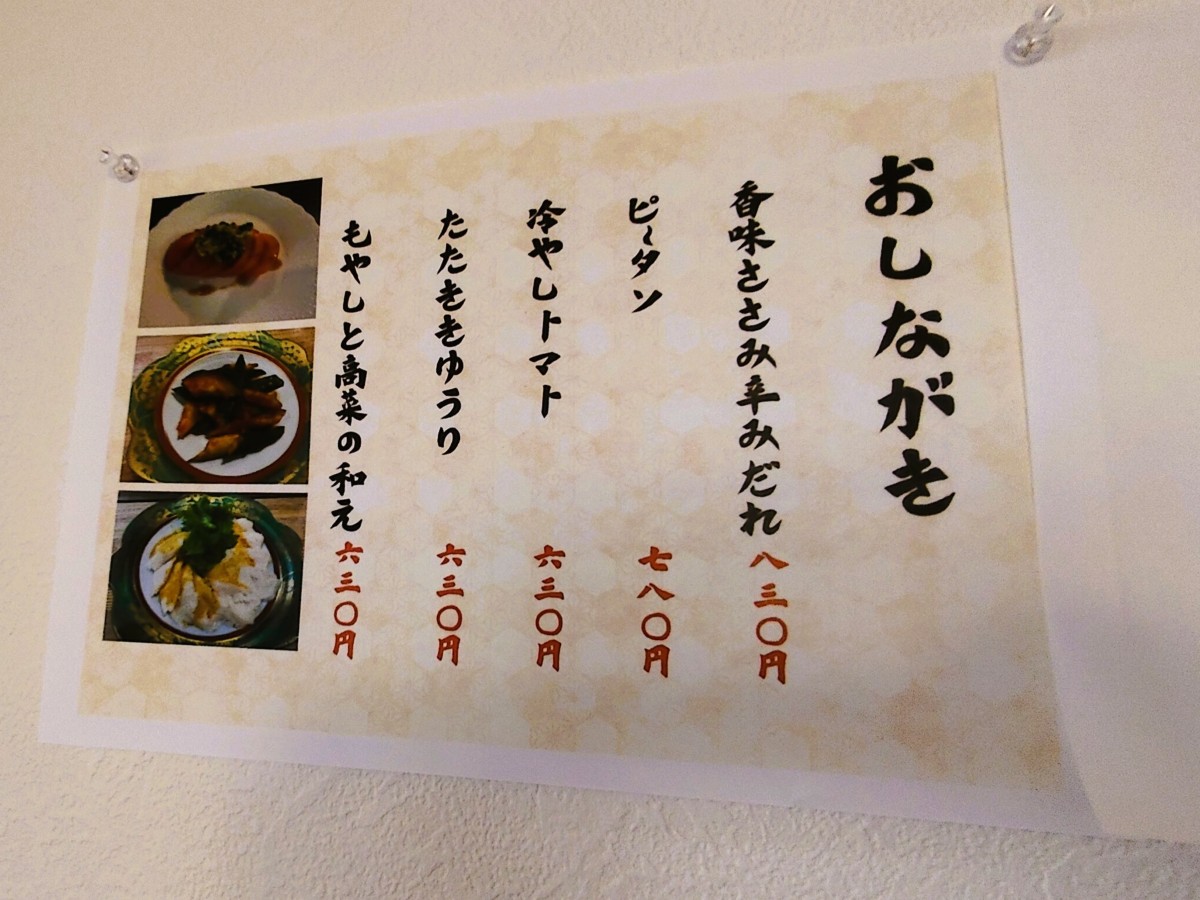 おしながき
香味ささみ辛みだれ 八三〇円
ピータン 七八〇円
冷やしトマト 六三〇円
たたききゆうり 六三〇円
もやしと高菜の和え 六三〇円